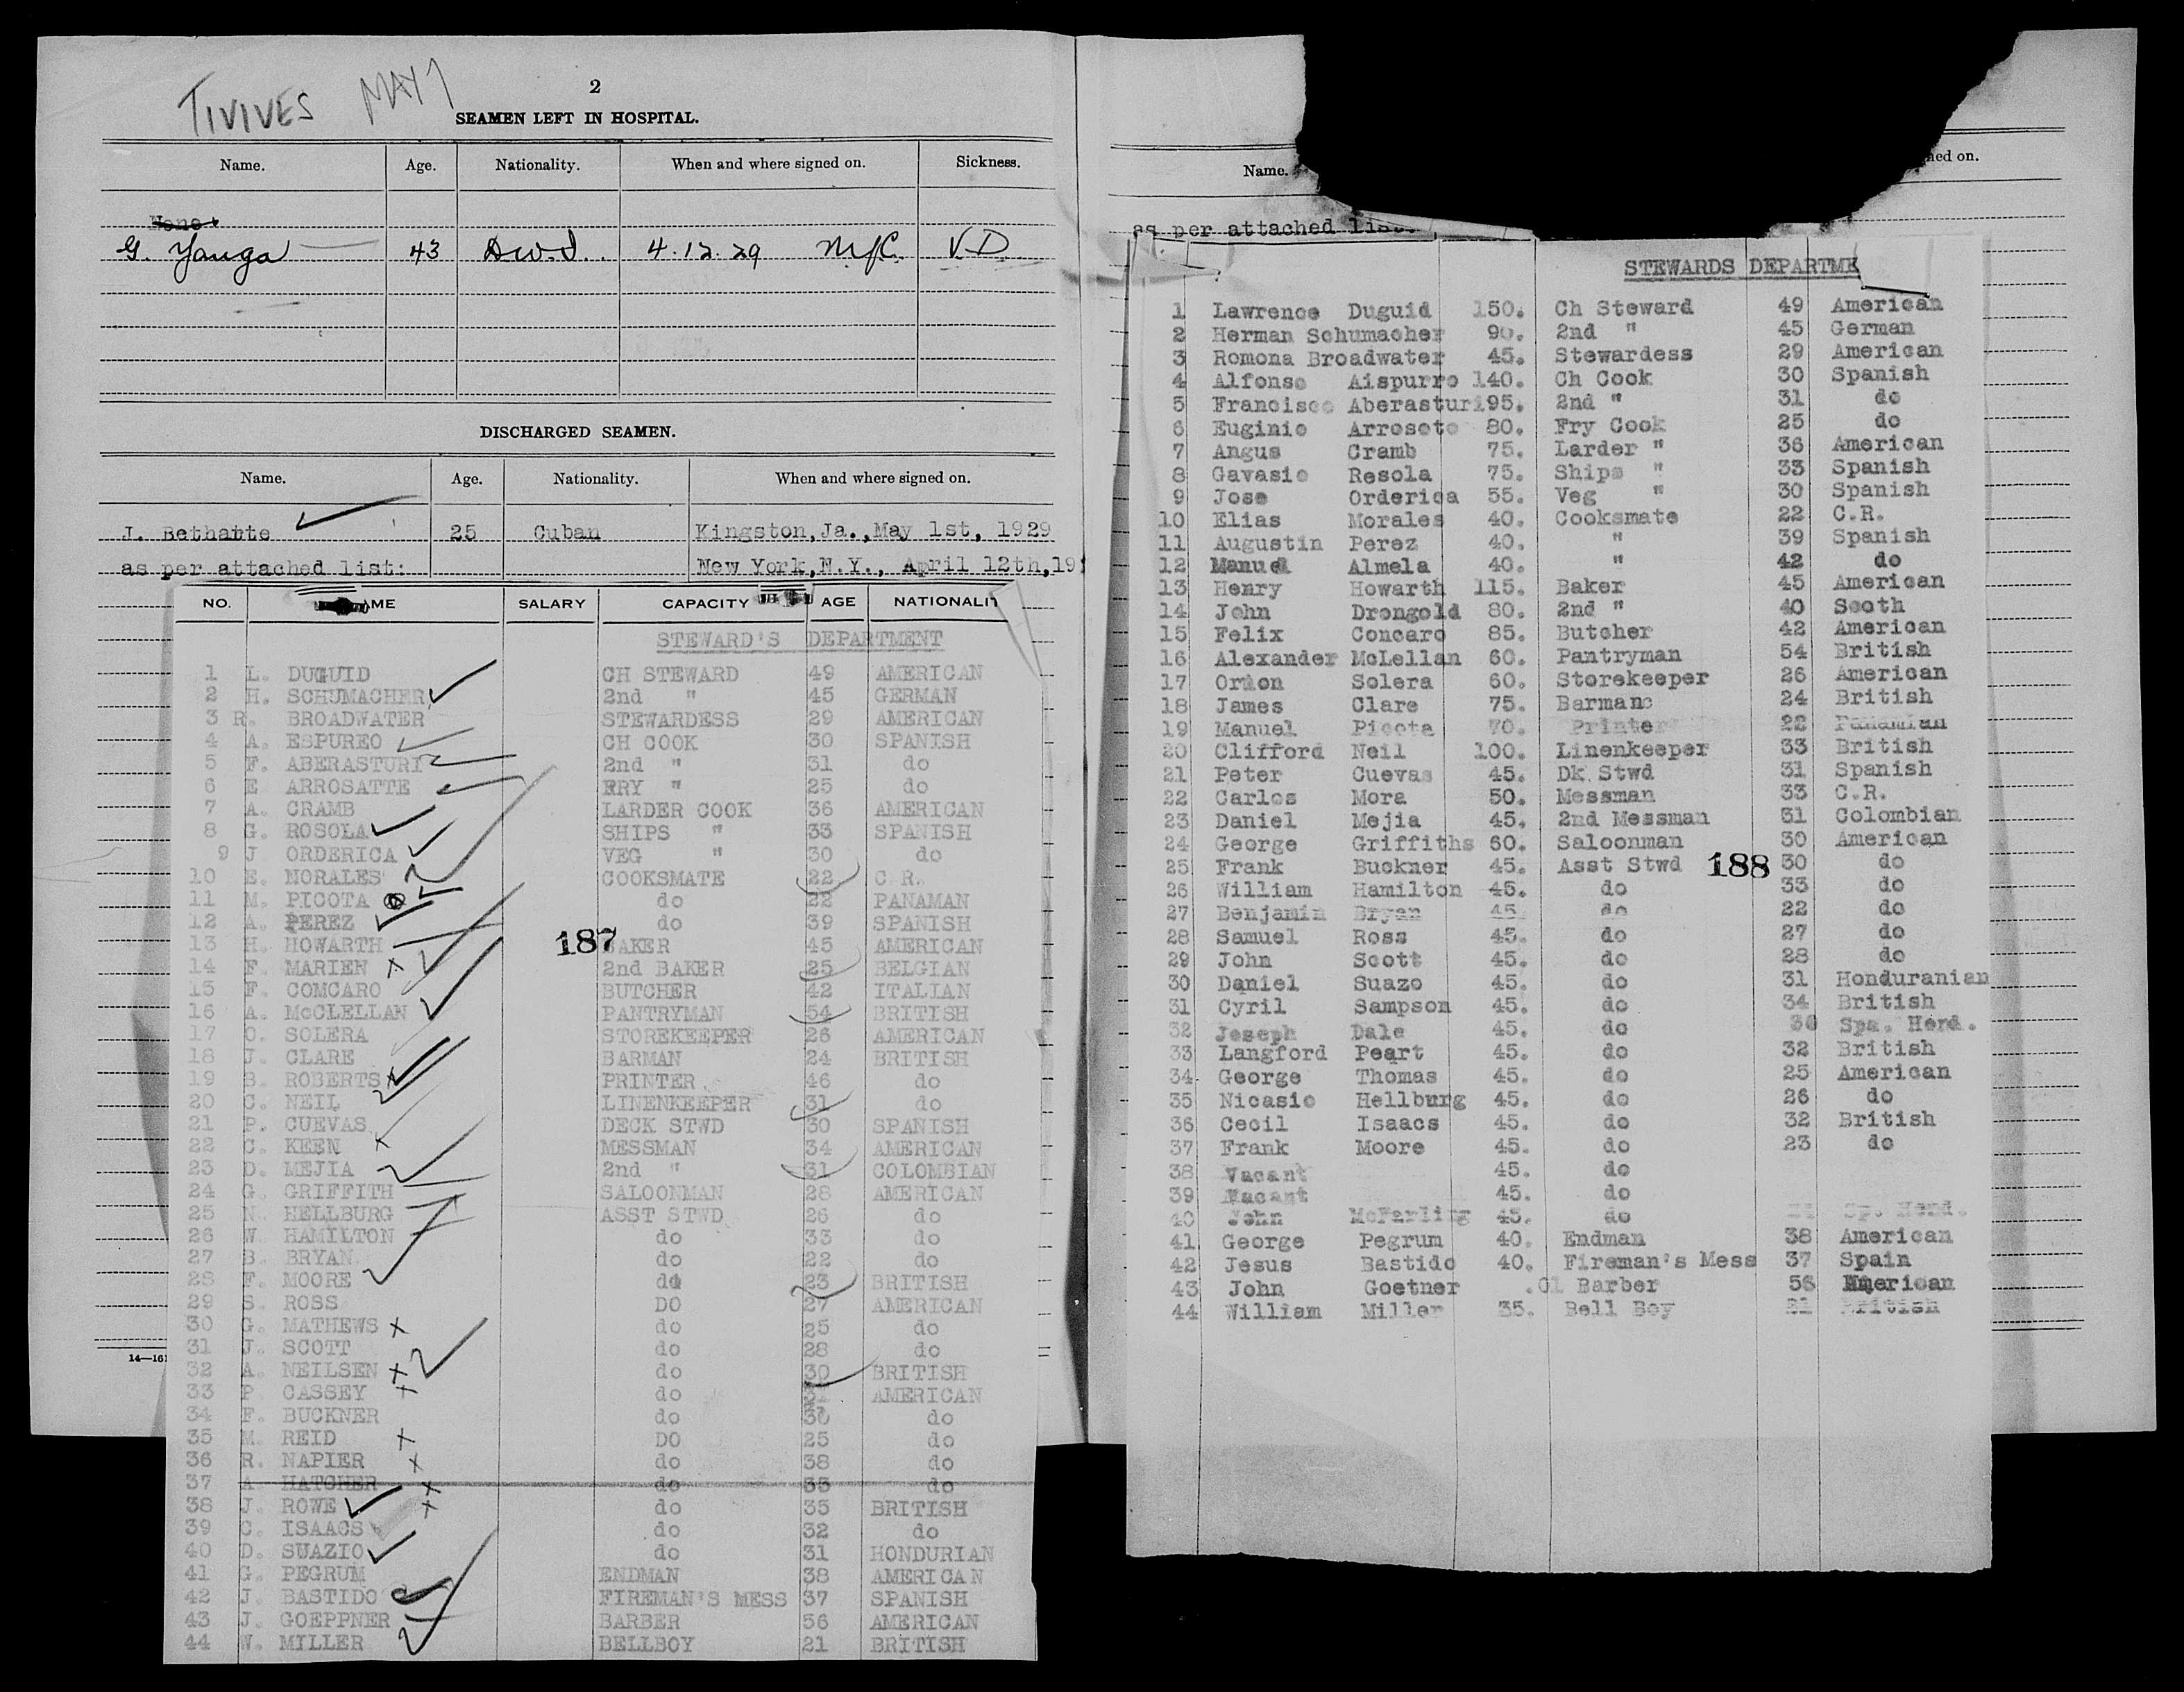 TIVIVES MAY 7
2
SEAMEN LEFT IN HOSPITAL.
Name. Age. Nationality. When and where signed on. Sickness.
None
G. Yanga 43 D.W.I. 4.12.29 V.D.
DISCHARGED SEAMEN.
Name. Age. Nationality. When and where signed on.
J. Betharte 25 Cuban Kingston,Ja.,May 1st, 1929
as per attached list: New York,N.Y., April 12th,19
NO. ME SALARY CAPACITY AGE NATIONALIT
STEWARD'S DEPARTMENT
1 L. DUGUID CH STEWARD 49 AMERICAN
2 H. SCHUMACHER 2nd " 45 GERMAN
3 R. BROADWATER STEWARDESS 29 AMERICAN
4 A. ESPUREO CH COOK 30 SPANISH
5 F. ABERASTURI 2nd " 31 do
6 E ARROSATTE FRY " 25 do
7 A. CRAMB LARDER COOK 36 AMERICAN
8 G. ROSOLA SHIPS " 33 SPANISH
9 J ORDERICA VEG " 30 do
10 E. MORALES COOKSMATE 22 C.R.
11 M. PICOTA do 22 PANAMAN
12 A. PEREZ do 39 SPANISH
13 H. HOWARTH 187 BAKER 45 AMERICAN
14 F. MARIEN X 2nd BAKER 25 BELGIAN
15 F. COMCARO BUTCHER 42 ITALIAN
16 A. McCLELLAN PANTRYMAN 54 BRITISH
17 O. SOLERA STOREKEEPER 26 AMERICAN
18 J. CLARE BARMAN 24 BRITISH
19 B. ROBERTS X PRINTER 46 do
20 C. NEIL LINENKEEPER 31 do
21 P. CUEVAS DECK STWD 30 SPANISH
22 C. KEEN X MESSMAN 34 AMERICAN
23 D. MEJIA 2nd " 31 COLOMBIAN
24 G. GRIFFITH SALOONMAN 28 AMERICAN
25 N. HELLBURG ASST STWD 26 do
26 W. HAMILTON do 33 do
27 B. BRYAN do 22 do
28 F. MOORE do 23 BRITISH
29 S. ROSS DO 27 AMERICAN
30 G. MATHEWS X do 25 do
31 J. SCOTT do 28 do
32 A. NEILSEN X do 30 BRITISH
33 P. CASSEY X do AMERICAN
34 F. BUCKNER do 30 do
35 M. REID X DO 25 do
36 R. NAPIER X do 38 do
37 A. HATCHER X do 33 do
38 J. ROWE X do 35 BRITISH
39 C. ISAACS do 32 do
40 D. SUAZIO do 31 HONDURIAN
41 G. PEGRUM ENDMAN 38 AMERICAN
42 J. BASTIDO FIREMAN'S MESS 37 SPANISH
43 J. GOEPPNER BARBER 56 AMERICAN
44 W. MILLER BELLBOY 21 BRITISH
14—161
Name. ned on.
as per attached list.
STEWARDS DEPARTME
1 Lawrence Duguid 150. Ch Steward 49 American
2 Herman Schumacher 90. 2nd " 45 German
3 Romona Broadwater 45. Stewardess 29 American
4 Alfonso Aispurro 140. Ch Cook 30 Spanish
5 Francisco Aberasturi95. 2nd " 31 do
6 Euginio Arrosoto 80. Fry Cook 25 do
7 Angus Cramb 75. Larder " 36 American
8 Gavasio Resola 75. Ships " 33 Spanish
9 Jose Orderica 55. Veg " 30 Spanish
10 Elias Morales 40. Cooksmate 22 C.R.
11 Augustin Perez 40. " 39 Spanish
12 Manuel Almela 40. " 42 do
13 Henry Howarth 115. Baker 45 American
14 John Drongold 80. 2nd " 40 Scoth
15 Felix Concaro 85. Butcher 42 American
16 Alexander McLellan 60. Pantryman 54 British
17 Orion Solera 60. Storekeeper 26 American
18 James Clare 75. Barmanc 24 British
19 Manuel Picota 70. Printer 22 Panamian
20 Clifford Neil 100. Linenkeeper 33 British
21 Peter Cuevas 45. Dk Stwd 31 Spanish
22 Carlos Mora 50. Messman 33 C.R.
23 Daniel Mejia 45. 2nd Messman 31 Colombian
24 George Griffiths 60. Saloonman 30 American
25 Frank Buckner 45. Asst Stwd 188 30 do
26 William Hamilton 45. do 33 do
27 Benjamin Bryan 45. do 22 do
28 Samuel Ross 45. do 27 do
29 John Scott 45. do 28 do
30 Daniel Suazo 45. do 31 Honduranian
31 Cyril Sampson 45. do 34 British
32 Joseph Dale 45. do 36 Spa. Hord.
33 Langford Peart 45. do 32 British
34 George Thomas 45. do 25 American
35 Nicasio Hellburg 45. do 26 do
36 Cecil Isaacs 45. do 32 British
37 Frank Moore 45. do 23 do
38 Vacant 45. do
39 Vacant 45. do
40 John McFarling 45. do Sp. Hond.
41 George Pegrum 40. Endman 38 American
42 Jesus Bastido 40. Fireman's Mess 37 Spain
43 John Goetner .01 Barber 56 American
44 William Miller 35. Bell Boy 21 British